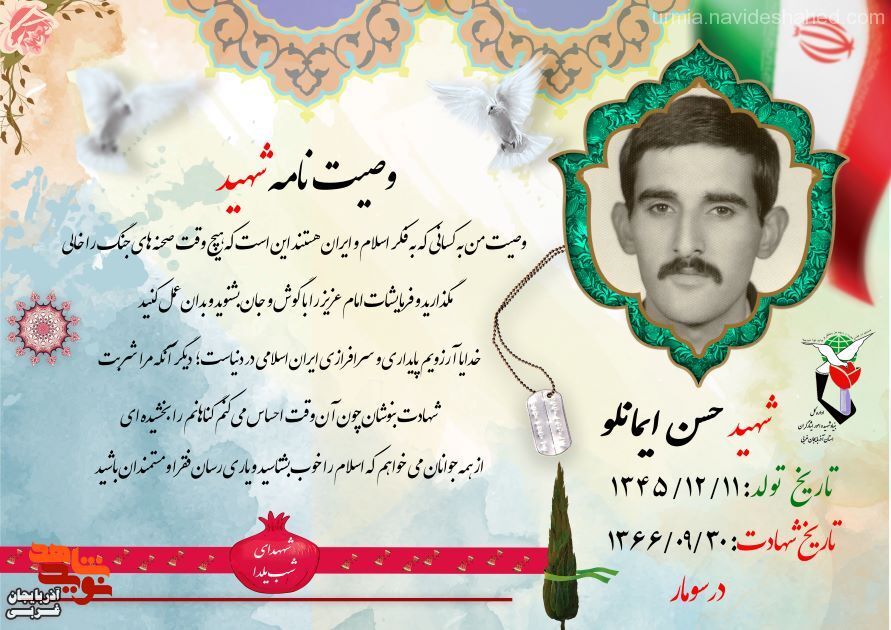 urmia.navideshahed.com
وصیت نامه شهید
وصیت من به کسانی که به فکر اسلام و ایران هستند این است که هیچ وقت صحنه های جنگ را خالی
مگذارید و فرمایشات امام عزیز را با گوش و جان بشنوید و بدان عمل کنید
خدایا آرزویم پایداری و سرافرازی ایران اسلامی در دنیاست؛ دیگر آنکه مرا شربت
شهادت بنوشان چون آن وقت احساس می کنم گناهانم را بخشیده ای
از همه جوانان می خواهم که اسلام را خوب بشناسید و یاری رسان فقرا و مستمندان باشید
شهید حسن ایمانلو
تاریخ تولد: ۱۳۴۵/۱۲/۱۱
تاریخ شهادت: ۱۳۶۶/۰۹/۳۰
در سومار
اداره کل
بنیاد شهید و امور ایثارگران
استان آذربایجان غربی
شهدای
شب یلدا
نوید شاهد
آذربایجان
غربی